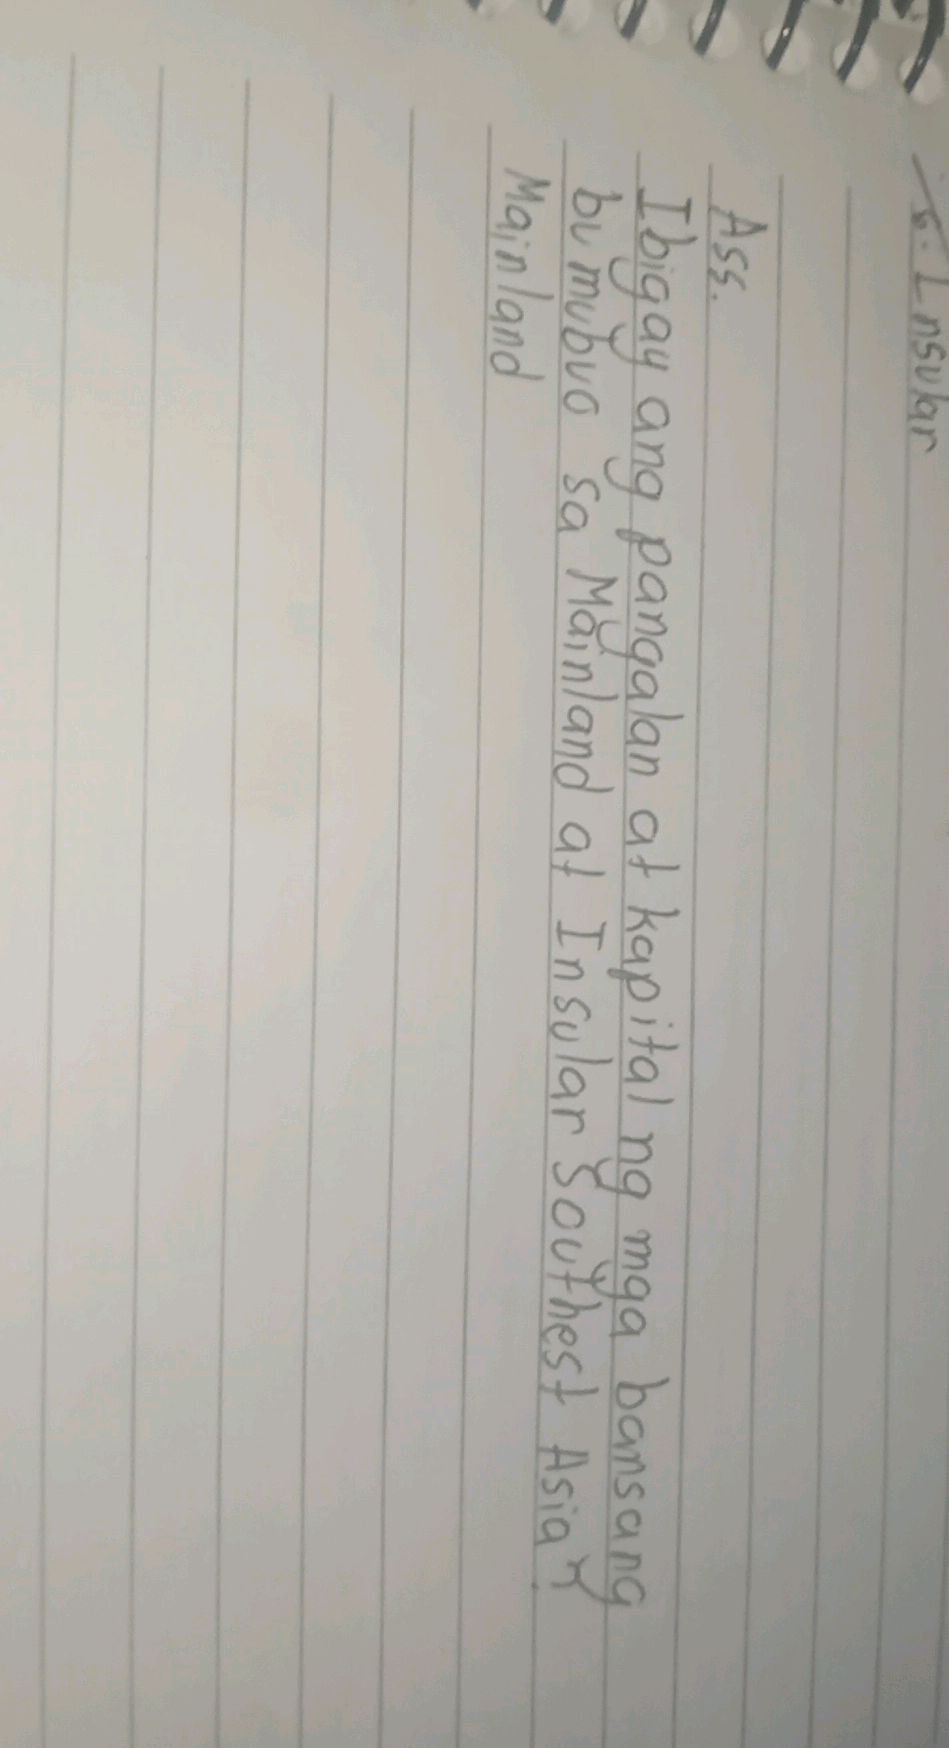 5. Insular
Ass.
Ibigay ang pangalan at kapital ng mga bansang
bumubuo sa Mainland at Insular Southest Asia?
Mainland